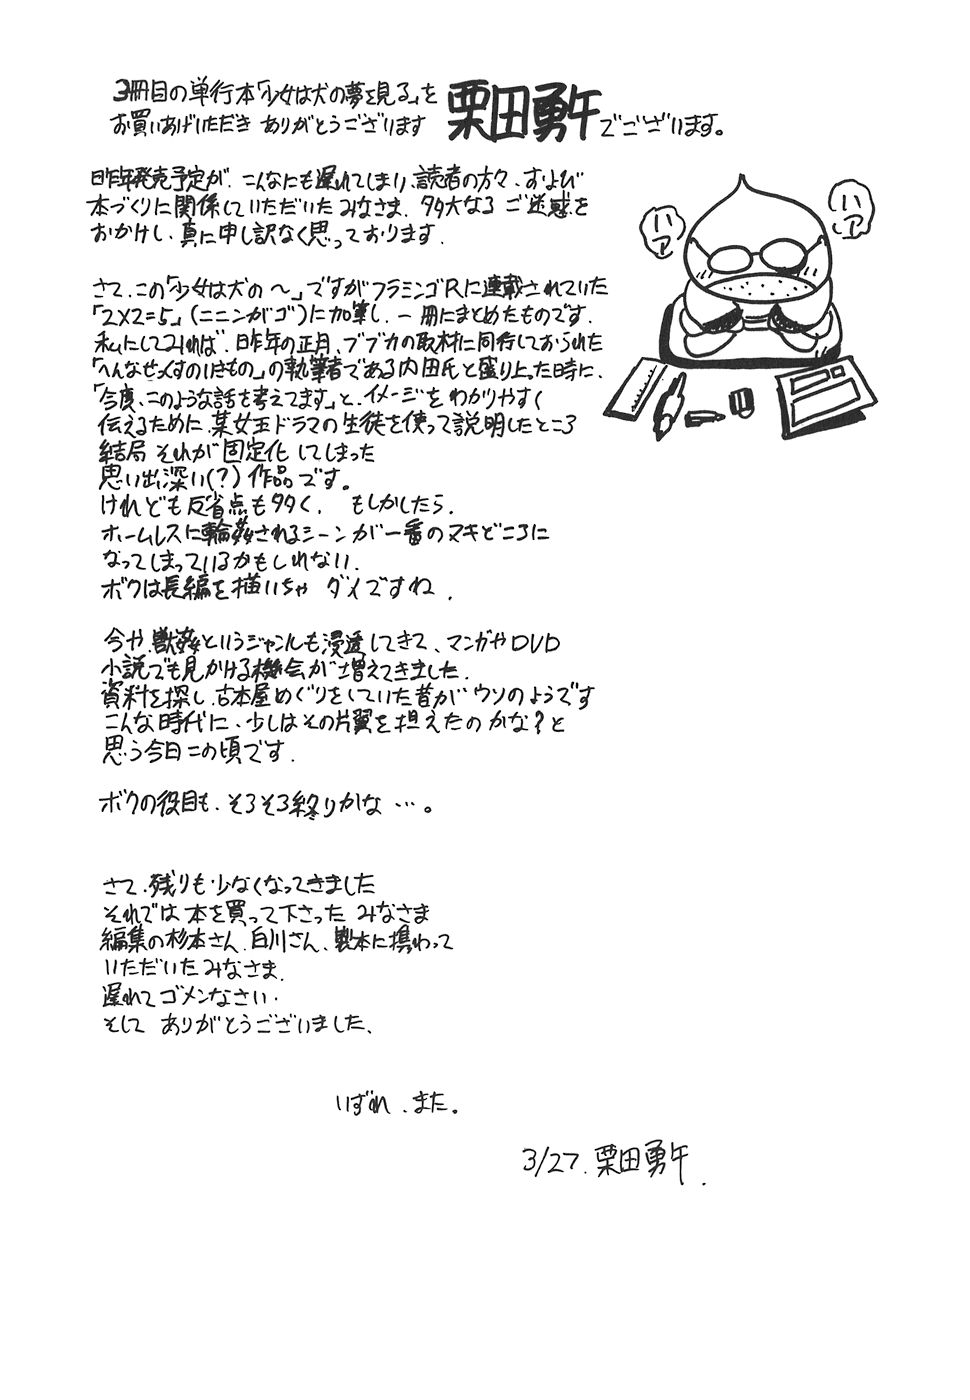 3冊目の単行本「少女は犬の夢を見る」を
お買いあげいただき ありがとうございます
栗田勇午でございます。
ハァ
ハァ
昨年発売予定が、こんなにも遅れてしまい、読者の方々、および
本づくりに関係していただいたみなさま、多大なるご迷惑を
おかけし、真に申し訳なく思っております.
さて、この「少女は犬の〜」ですがフラミンゴRに連載されていた
「2×2=5」(ニニンがゴ)に加筆し、一冊にまとめたものです.
私にしてみれば、昨年の正月、ブブカの取材に同行しておられた
「へんなせっくすのいきもの」の執筆者である内田氏と盛り上った時に、
「今度、このような話を考えてます」と、イメージをわかりやすく
伝えるために、某女王ドラマの生徒を使って説明したところ
結局 それが固定化してしまった
思い出深い(?)作品です。
けれども反省点も多く、もしかしたら、
ホームレスに輪姦されるシーンが一番のヌキどころに
なってしまっているかもしれない.
ボクは長編を描いちゃ ダメですね.
今や、獣姦というジャンルも浸透してきて、マンガやDVD
小説でも見かける機会が増えてきました.
資料を探し、古本屋めぐりをしていた昔が ウソのようです
こんな時代に、少しはその片翼を担えたのかな?と
思う今日この頃です.
ボクの役目も、そろそろ終りかな…。
さて、残りも少なくなってきました
それでは 本を買って下さった みなさま
編集の杉本さん、白川さん、製本に携わって
いただいたみなさま.
遅れて ゴメンなさい.
そして ありがとうございました.
いずれ、また。
3/27. 栗田勇午.